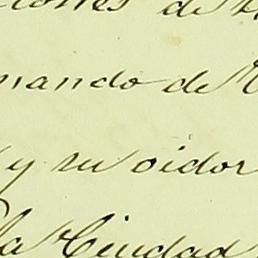 de
mando de
y su oidor
la Ciudad